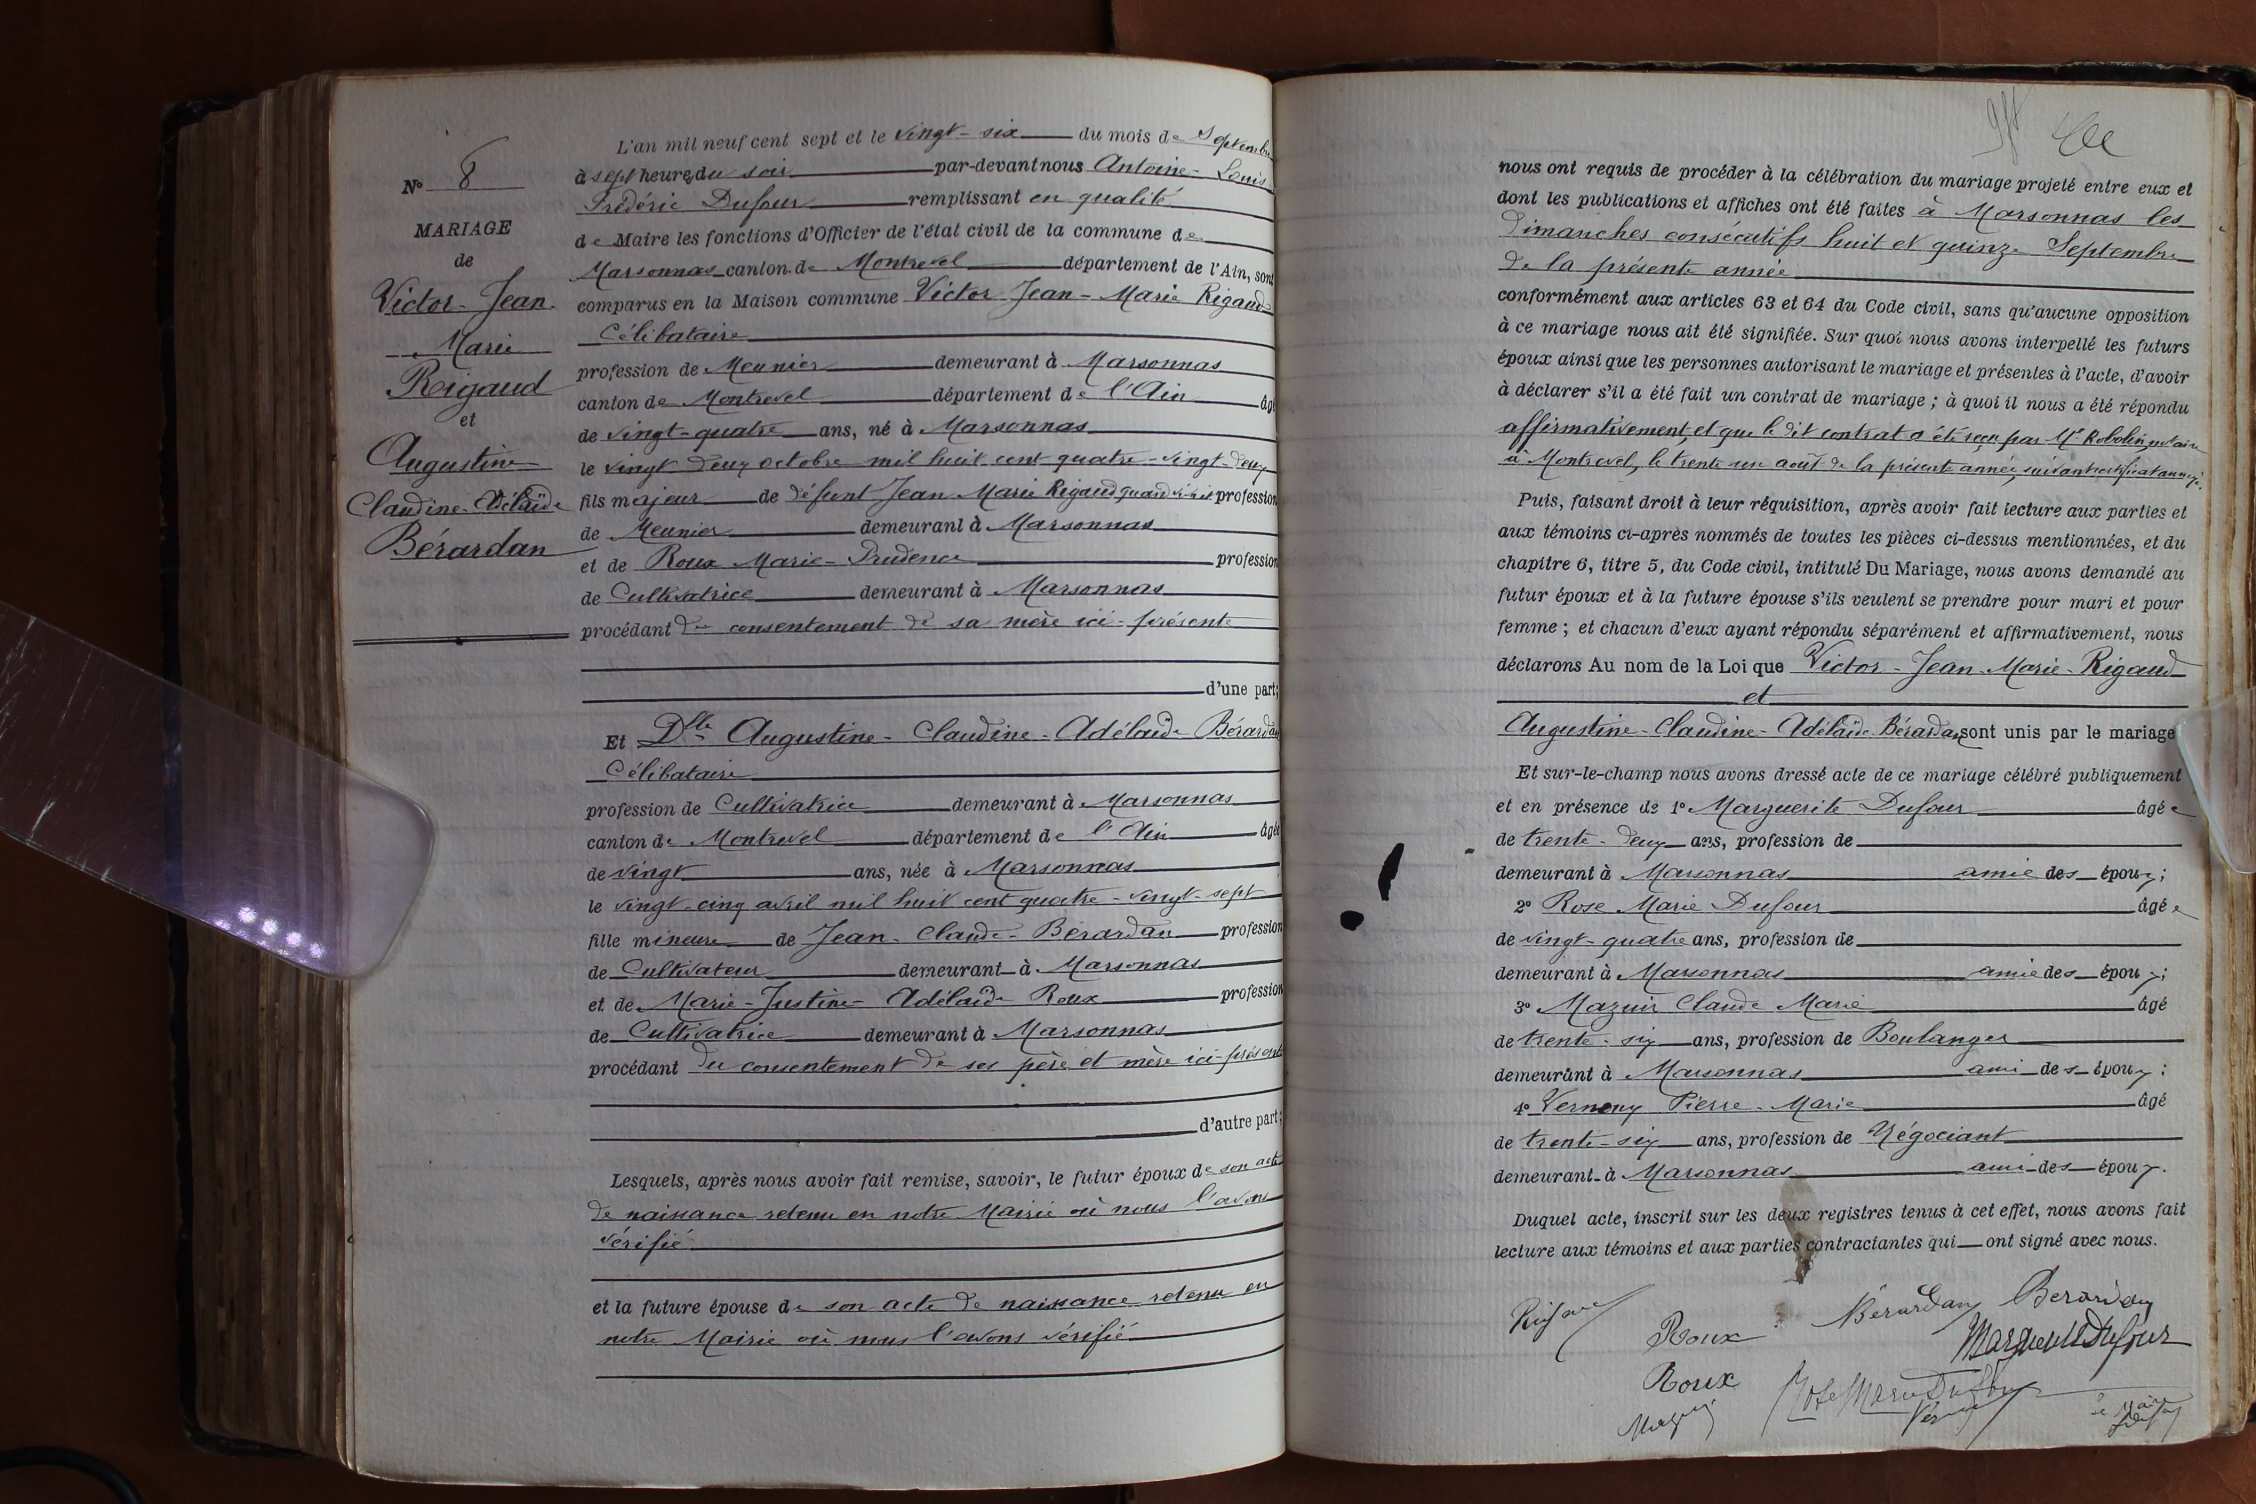 N° 8
MARIAGE
de
Victor-Jean-
Marie
Rigaud
et
Augustine
Claudine-Adélaïde
Bérardan
L'an mil neuf cent sept et le vingt-six du mois de Septembre
à sept heures du soir par-devant nous Antoine-Louis
Frédéric Dufour remplissant en qualité
de Maire les fonctions d'Officier de l'état civil de la commune de
Marsonnas canton de Montrevel département de l'Ain, sont
comparus en la Maison commune Victor Jean-Marie Rigaud
Célibataire
profession de Meunier demeurant à Marsonnas
canton de Montrevel département de l'Ain âgé
de vingt-quatre ans, né à Marsonnas
le vingt deux octobre mil huit cent quatre-vingt-deux
fils majeur de défunt Jean Marie Rigaud quand vivait profession
de Meunier demeurant à Marsonnas
et de Roux Marie-Prudence profession
de Cultivatrice demeurant à Marsonnas
procédant du consentement de sa mère ici-présente
d'une part;
Et Dlle Augustine-Claudine-Adélaïde Bérardan
Célibataire
profession de Cultivatrice demeurant à Marsonnas
canton de Montrevel département de l'Ain âgée
de vingt ans, née à Marsonnas
le vingt-cinq avril mil huit cent quatre-vingt-sept
fille mineure de Jean-Claude-Bérardan profession
de Cultivateur demeurant à Marsonnas
et de Marie-Justine-Adélaïde Roux profession
de Cultivatrice demeurant à Marsonnas
procédant du consentement de ses père et mère ici-présents
d'autre part;
Lesquels, après nous avoir fait remise, savoir, le futur époux de son acte
de naissance retenu en notre Mairie où nous l'avons
vérifié
et la future épouse de son acte de naissance retenu en
notre Mairie où nous l'avons vérifié
nous ont requis de procéder à la célébration du mariage projeté entre eux et
dont les publications et affiches ont été faites à Marsonnas les
dimanches consécutifs huit et quinze Septembre
de la présente année
conformément aux articles 63 et 64 du Code civil, sans qu'aucune opposition
à ce mariage nous ait été signifiée. Sur quoi nous avons interpellé les futurs
époux ainsi que les personnes autorisant le mariage et présentes à l'acte, d'avoir
à déclarer s'il a été fait un contrat de mariage ; à quoi il nous a été répondu
affirmativement, et que le dit contrat a été reçu par Me Robolin, notaire
à Montrevel, le trente un août de la présente année, suivant certificat annexé.
Puis, faisant droit à leur réquisition, après avoir fait lecture aux parties et
aux témoins ci-après nommés de toutes les pièces ci-dessus mentionnées, et du
chapitre 6, titre 5, du Code civil, intitulé Du Mariage, nous avons demandé au
futur époux et à la future épouse s'ils veulent se prendre pour mari et pour
femme ; et chacun d'eux ayant répondu séparément et affirmativement, nous
déclarons Au nom de la Loi que Victor-Jean-Marie-Rigaud
et
Augustine-Claudine-Adélaïde-Bérardan sont unis par le mariage
Et sur-le-champ nous avons dressé acte de ce mariage célébré publiquement
et en présence de 1° Marguerite Dufour âgée
de trente-deux ans, profession de
demeurant à Marsonnas amie des époux;
2° Rose Marie Dufour âgée
de vingt-quatre ans, profession de
demeurant à Marsonnas amie des époux;
3° Mazuir Claude Marie âgé
de trente-six ans, profession de Boulanger
demeurant à Marsonnas ami des époux;
4° Verneny Pierre-Marie âgé
de trente-six ans, profession de Négociant
demeurant à Marsonnas ami des époux.
Duquel acte, inscrit sur les deux registres tenus à cet effet, nous avons fait
lecture aux témoins et aux parties contractantes qui ont signé avec nous.
Bérardan Berardan
Roux
Marguerite Dufour
Roux
Rose Marie Dufour
le Maire